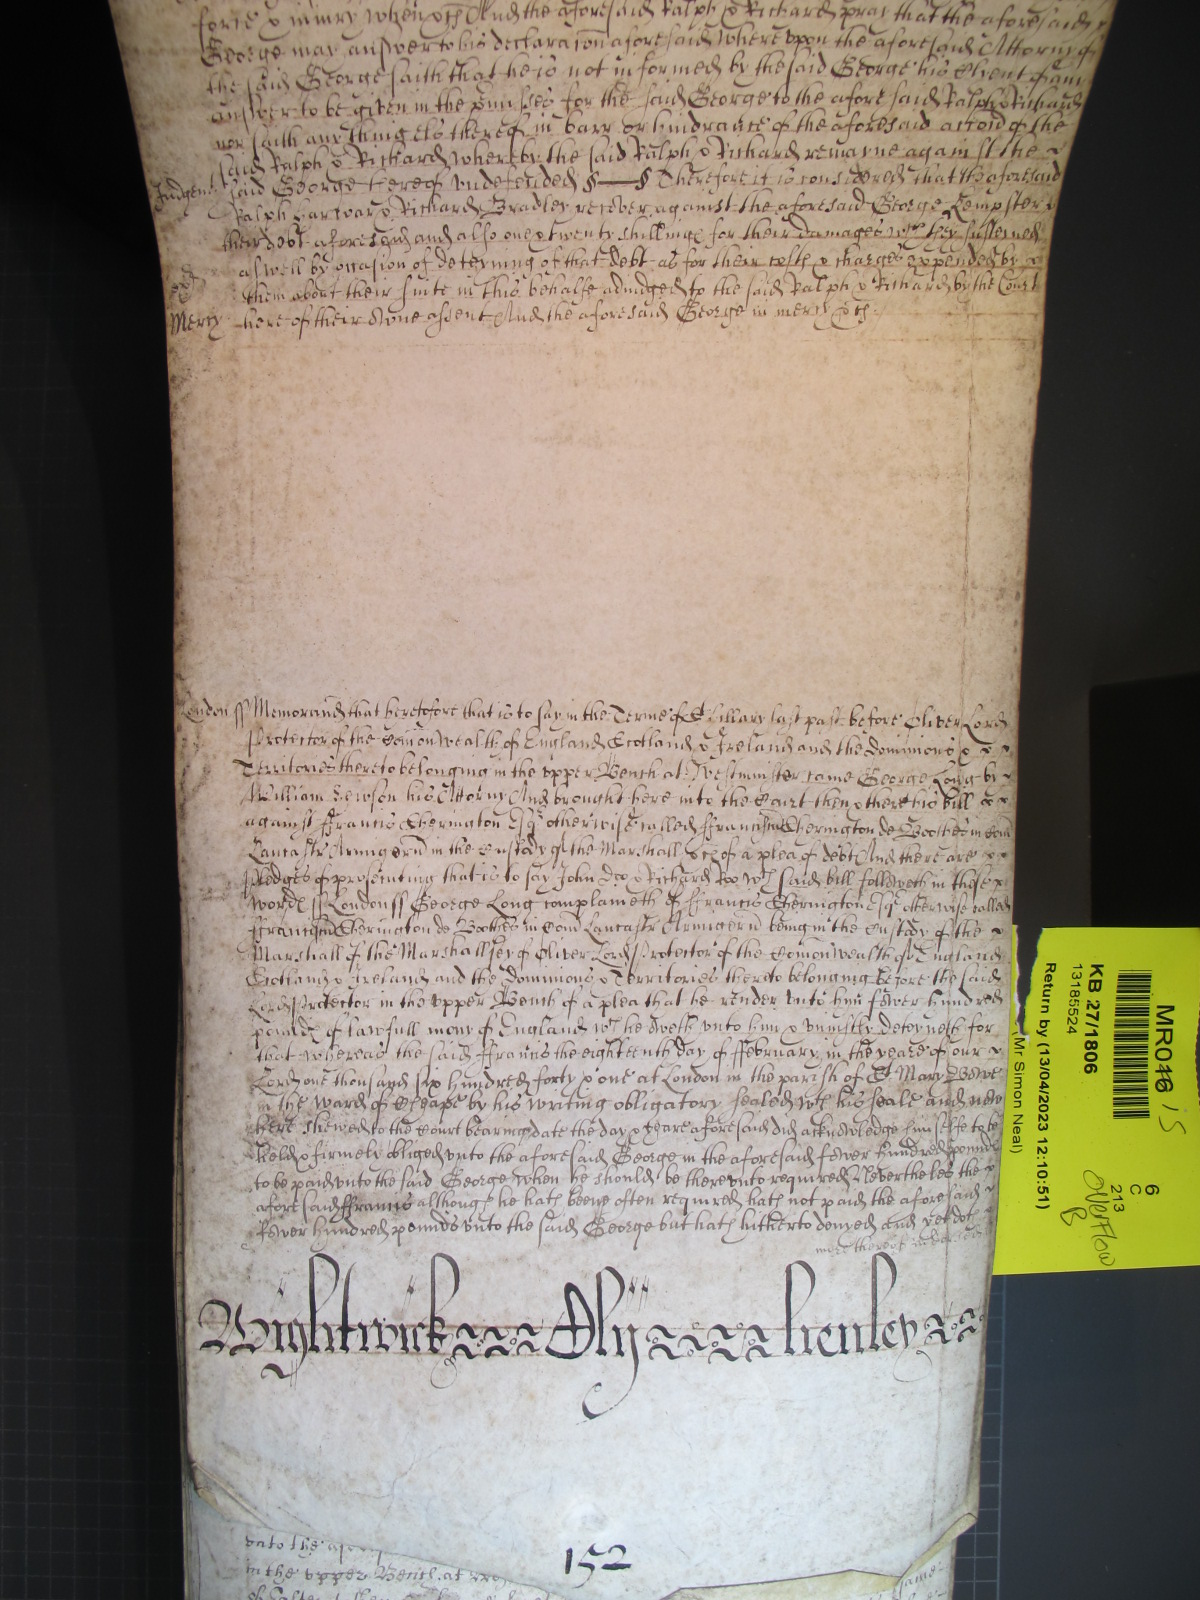 force & iniury when &c And the aforesaid Ralph & Richard pray that the aforesaid
George may answer to his declaracon aforesaid Where vpon the aforesaid Attorny of
the said George saith that he is not informed by the said George his Client of any
answer to be given in the pmisses for the said George to the aforesaid Ralph & Richard
nor saith any thing els thereof in barr or hindrance of the aforesaid accon of the
said Ralph & Richard whereby the said Ralph & Richard remayne against the
Judgemt said George thereof vndefended § — § Therefore it is considered that the aforesaid
Ralph & Richard Bradley recover against the aforesaid George Kempster
their debt aforesaid and also one & twenty shillings for their damages wch they susteined
aswell by occasion of deteyning of that debt as for their costs & charges expended by
them about their suite in this behalfe adiudged to the said Ralph & Richard by the Court
Mercy here of their owne assent And the aforesaid George in mercy &c
London ss Memorand that heretofore that is to say in the Terme of St Hillary last past before Oliver Lord
Protector of the Comonwealth of England Scotland & Ireland and the dominions &
Territories thereto belonging in the vpper Bench at Westminster came George Long by
William his Attorny And brought here into the Court then & there his bill
against ffrancis Therington Esqr otherwise called ffranciscu Therington de Boothes in Com
Lancastr Armigeru in the Custody of the Marshall &c of a plea of debt And there are
pledges of prosecuting that is to say John Doo & Richard Roo wch said bill followeth in these
words ss London ss George Long complaineth of ffrancis Therington Esqr otherwise called
ffranciscu Therington de Boothes in Com Lancastr Armigeru being in the Custody of the
Marshall of the Marshallsey of Oliver Lord Protector of the Comonwealth of England
Scotland & Ireland and the Dominions & Territories thereto belonging before the said
Lord Protector in the vpper Bench of a plea that he render vnto him fower hundred
pounds of lawfull mony of England wch he oweth vnto him & vniustly deteyneth for
that whereas the said ffrancis the eighteenth day of ffebruary in the yeare of our
Lord one thousand six hundred forty & one at London in the parish of St Mary Bowe
in the ward of Cheape by his writing obligatory sealed wth his seale and now
here shewed to the Court bearing date the day & yeare aforesaid did acknowledge himselfe to be
held & firmely obliged vnto the aforesaid George in the aforesaid fower hundred pounds
to be paid vnto the said George when he should be therevnto required Neverthelese the
aforesaid ffrancis although he hath beene often required hath not paid the aforesaid
fower hundred pounds vnto the said George but hath hitherto denyed and yet doth
Wightwick Oly henley
152
vnto the
in the vpper Bench at
MR046 / S
KB 27/1806
13185524
Return by (13/04/2023 12:10:51)
Mr Simon Neal)
6
C
213
Overflow
B